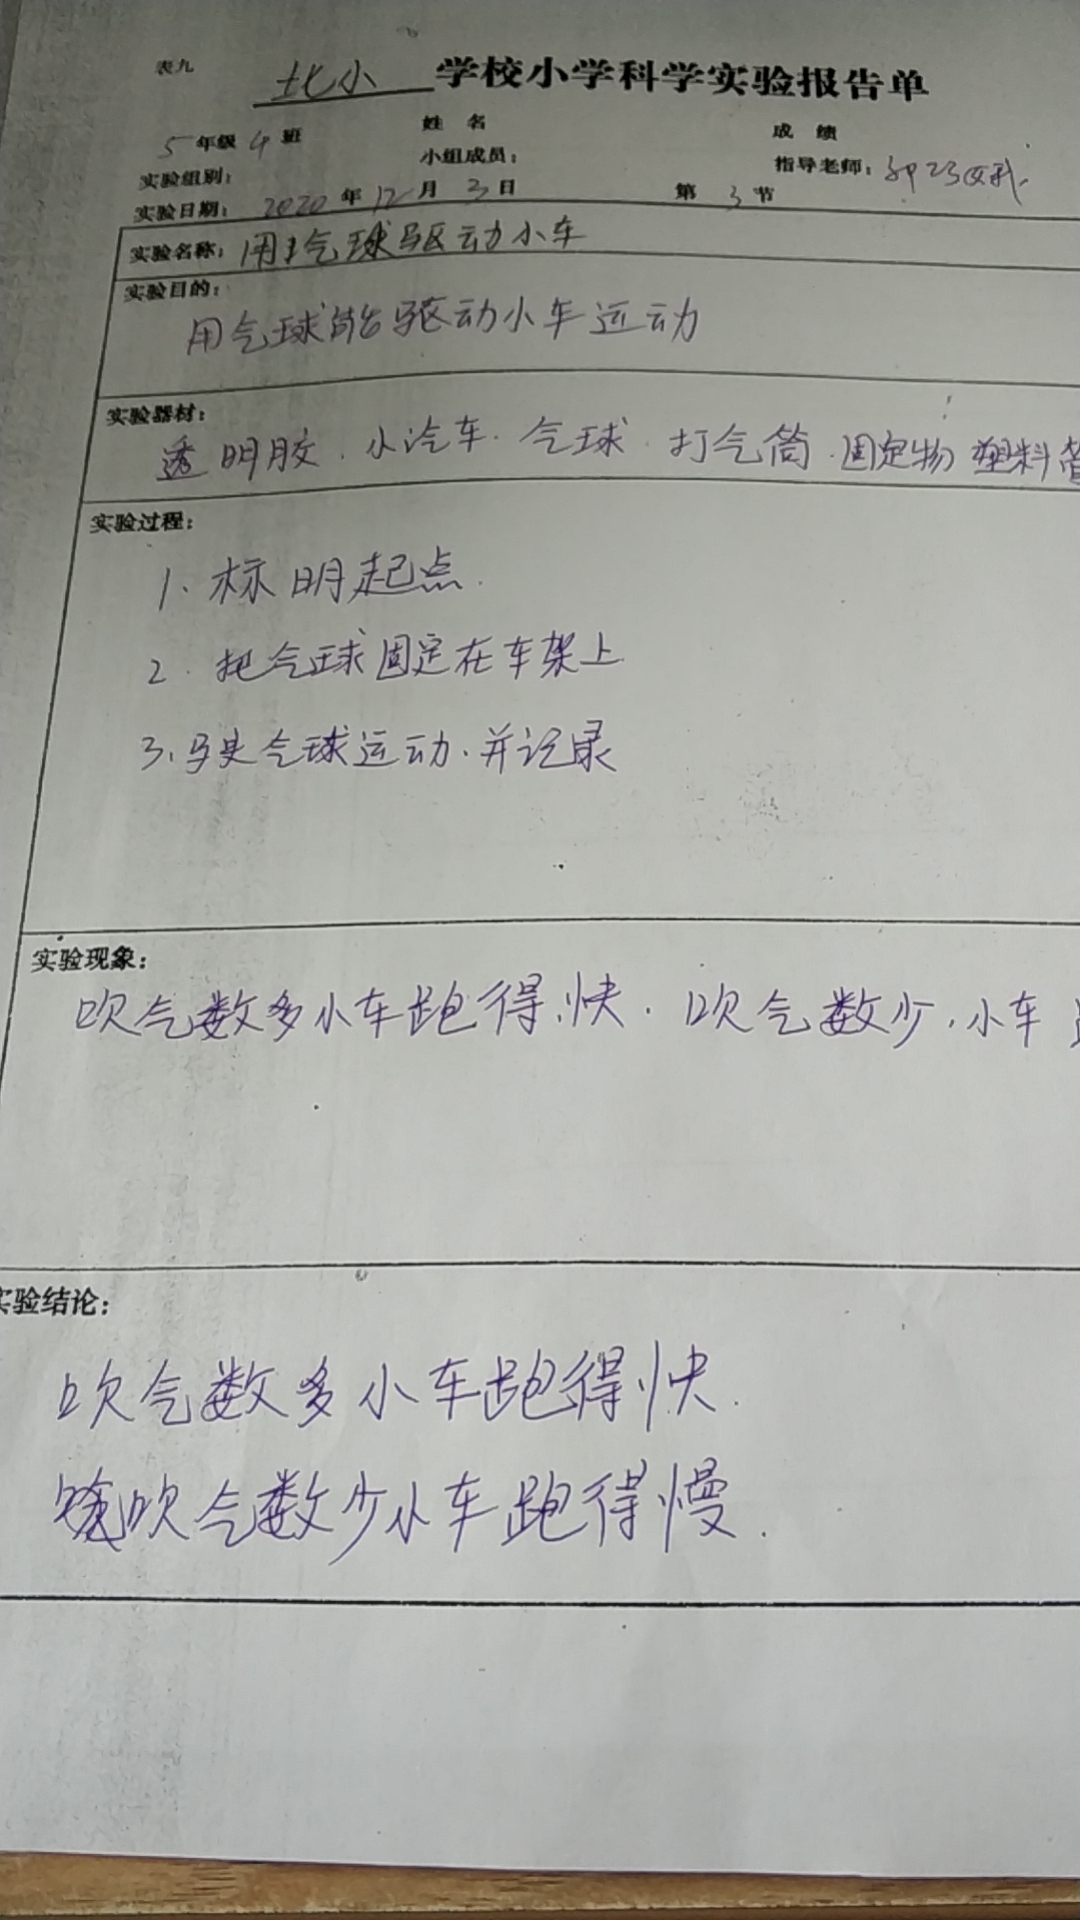 表九
北小 学校小学科学实验报告单
5年级4班 姓 名 成 绩
实验组别： 小组成员： 指导老师：
实验日期： 2020年12月3日 第3节
实验名称：用气球驱动小车
实验目的：
用气球能驱动小车运动
实验器材：
透明胶．小汽车．气球．打气筒．固定物 塑料管
实验过程：
1、标明起点．
2．把气球固定在车架上
3、气球运动．并记录
实验现象：
吹气数多小车跑得快．吹气数少．小车
实验结论：
吹气数多小车跑得快．
吹气数少小车跑得慢．